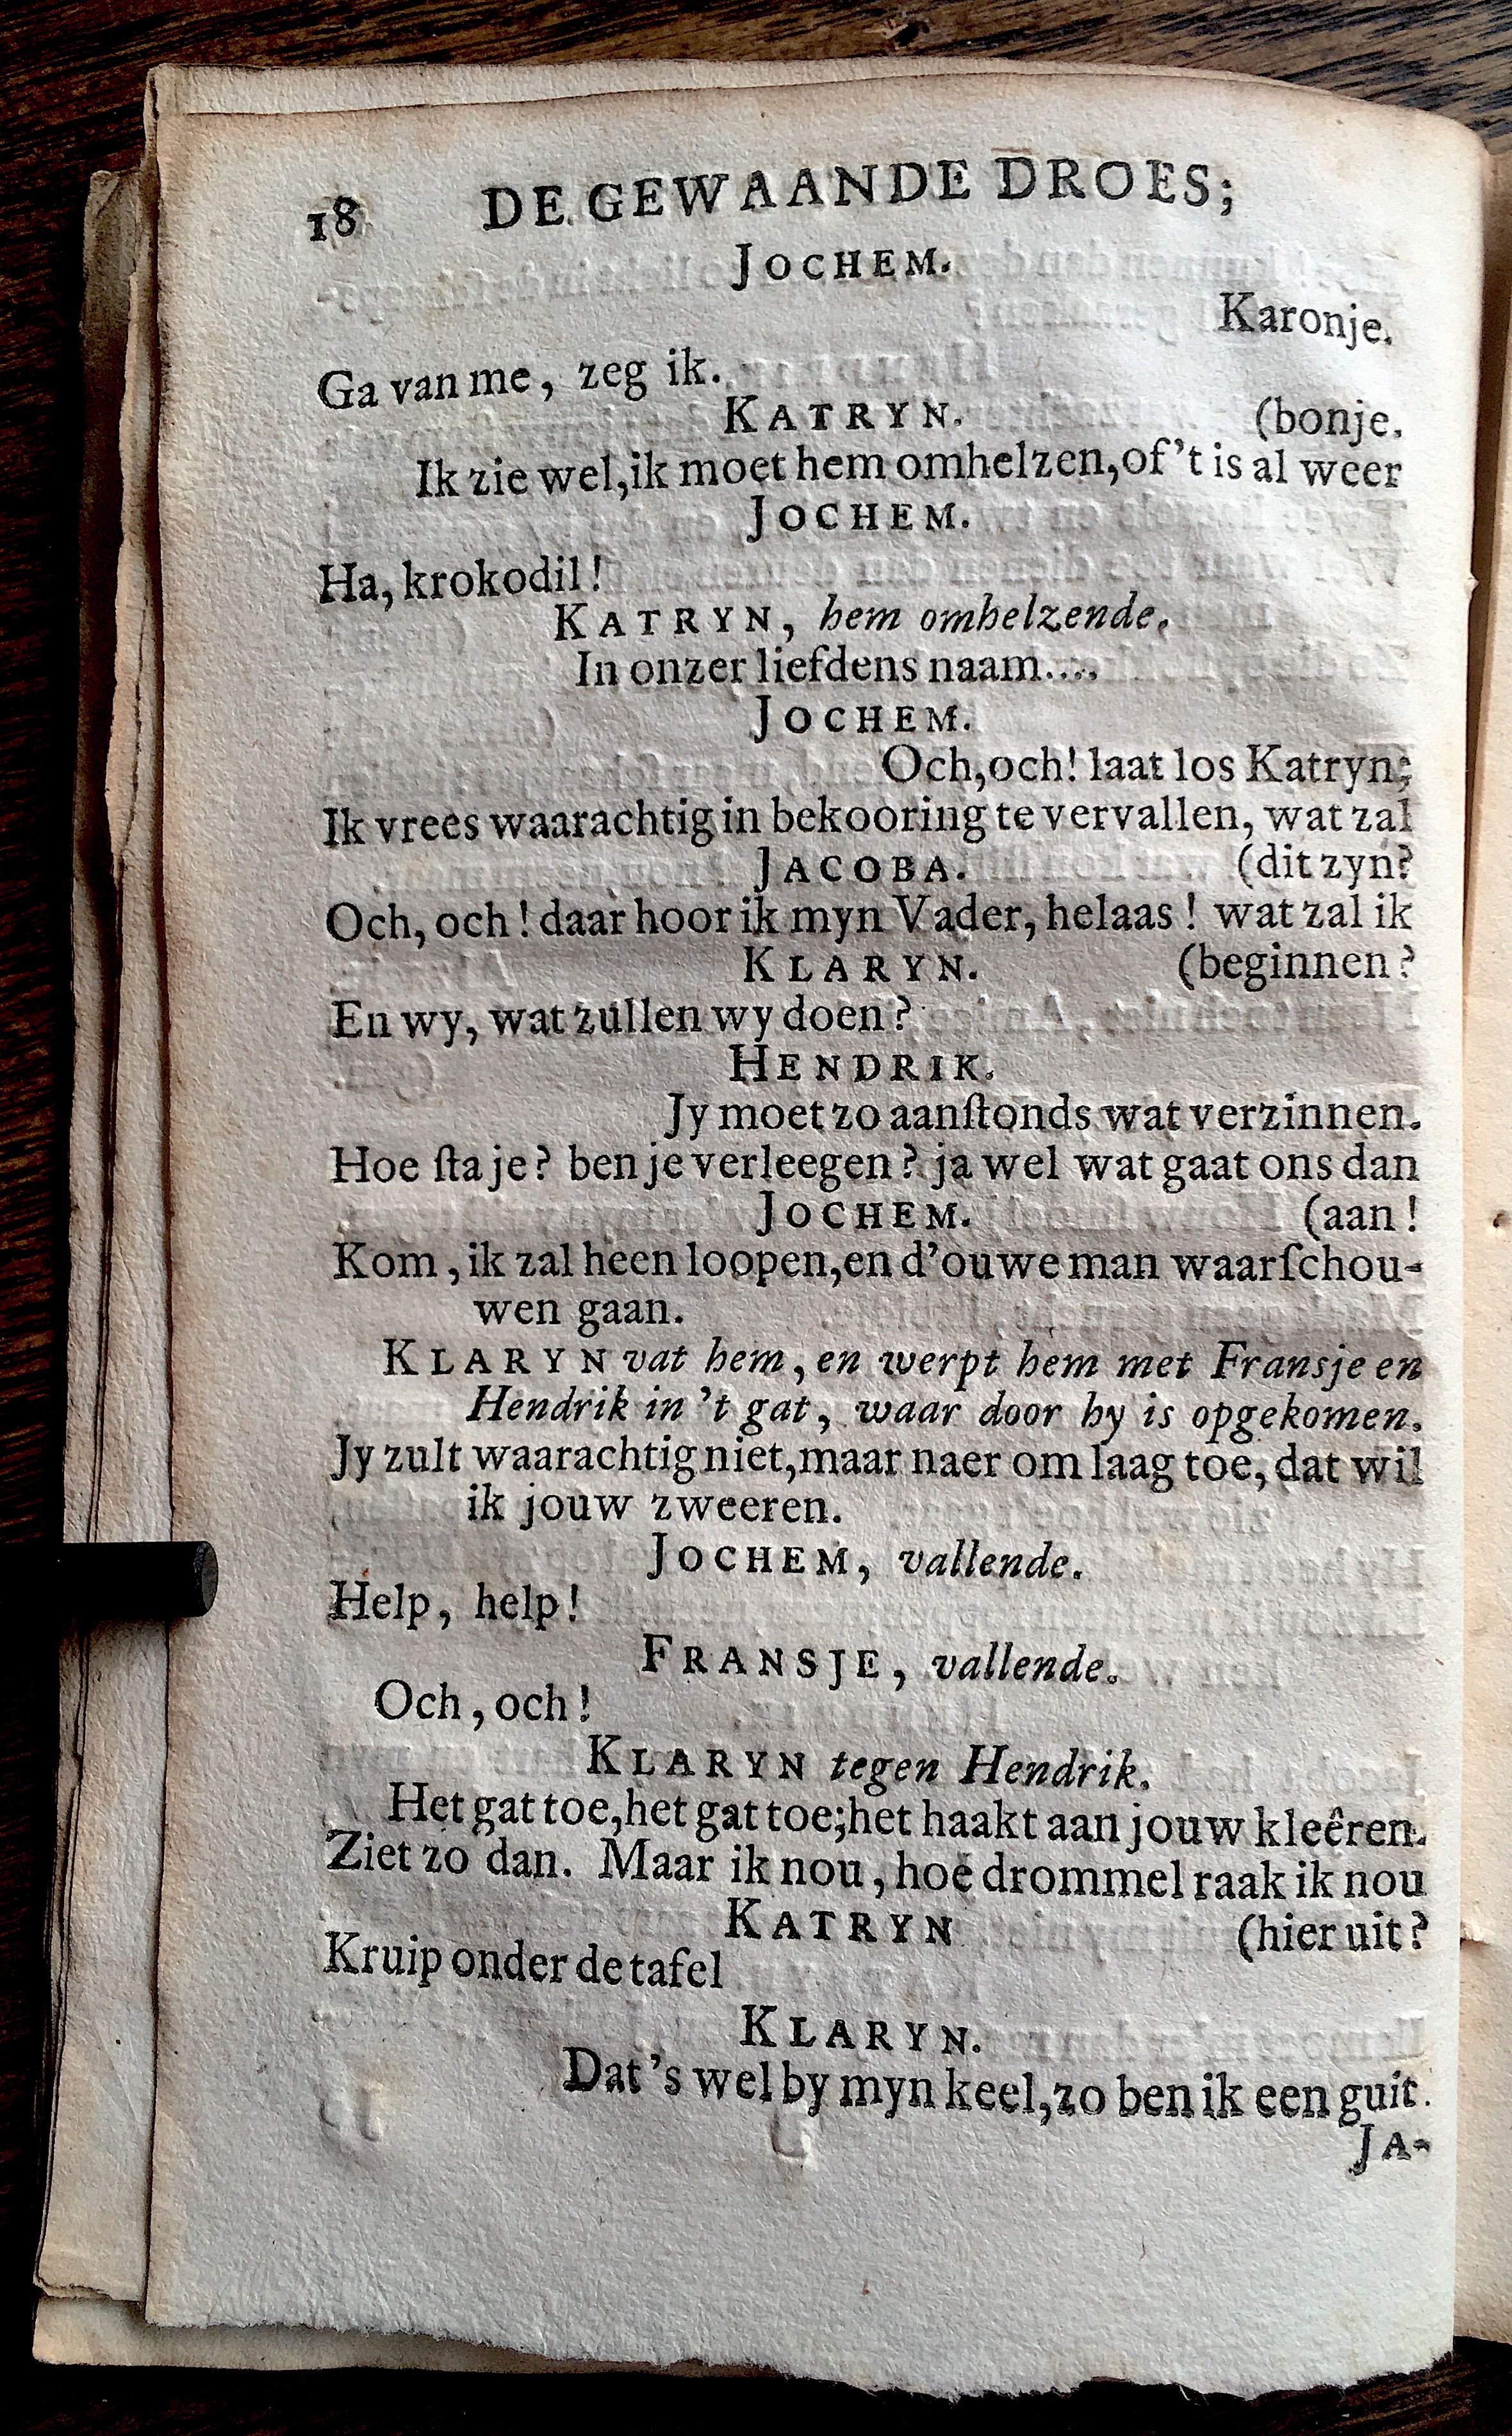 18 DE GEWAANDE DROES;
JOCHEM.
Karonje.
Ga van me, zeg ik.
KATRYN. (bonje.
Ik zie wel, ik moet hem omhelzen, of 't is al weer
JOCHEM.
Ha, krokodil!
KATRYN, hem omhelzende.
In onzer liefdens naam....
JOCHEM.
Och, och! laat los Katryn;
Ik vrees waarachtig in bekooring te vervallen, wat zal
JACOBA. (dit zyn?
Och, och! daar hoor ik myn Vader, helaas! wat zal ik
KLARYN. (beginnen?
En wy, wat zullen wy doen?
HENDRIK.
Jy moet zo aanſtonds wat verzinnen.
Hoe ſta je? ben je verleegen? ja wel wat gaat ons dan
JOCHEM. (aan!
Kom, ik zal heen loopen, en d'ouwe man waarſchou-
wen gaan.
KLARYN vat hem, en werpt hem met Fransje en
Hendrik in 't gat, waar door hy is opgekomen.
Jy zult waarachtig niet, maar naer om laag toe, dat wil
ik jouw zweeren.
JOCHEM, vallende.
Help, help!
FRANSJE, vallende.
Och, och!
KLARYN tegen Hendrik.
Het gat toe, het gat toe; het haakt aan jouw kleêren.
Ziet zo dan. Maar ik nou, hoe drommel raak ik nou
KATRYN (hier uit?
Kruip onder de tafel
KLARYN.
Dat 's wel by myn keel, zo ben ik een guit.
JA-